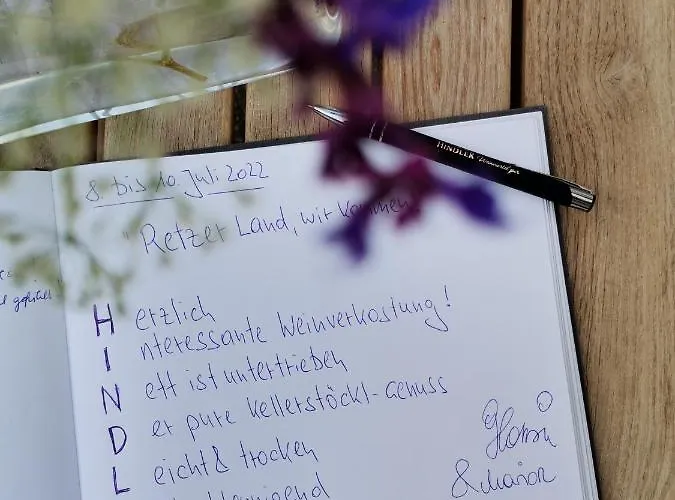 8. bis 10. Juli 2022
"Retzer Land, wir kommen
Herzlich
Interessante Weinverkostung!
Nett ist untertrieben
Der pure Kellerstöckl-Genuss
Leicht & trocken
HINDLER